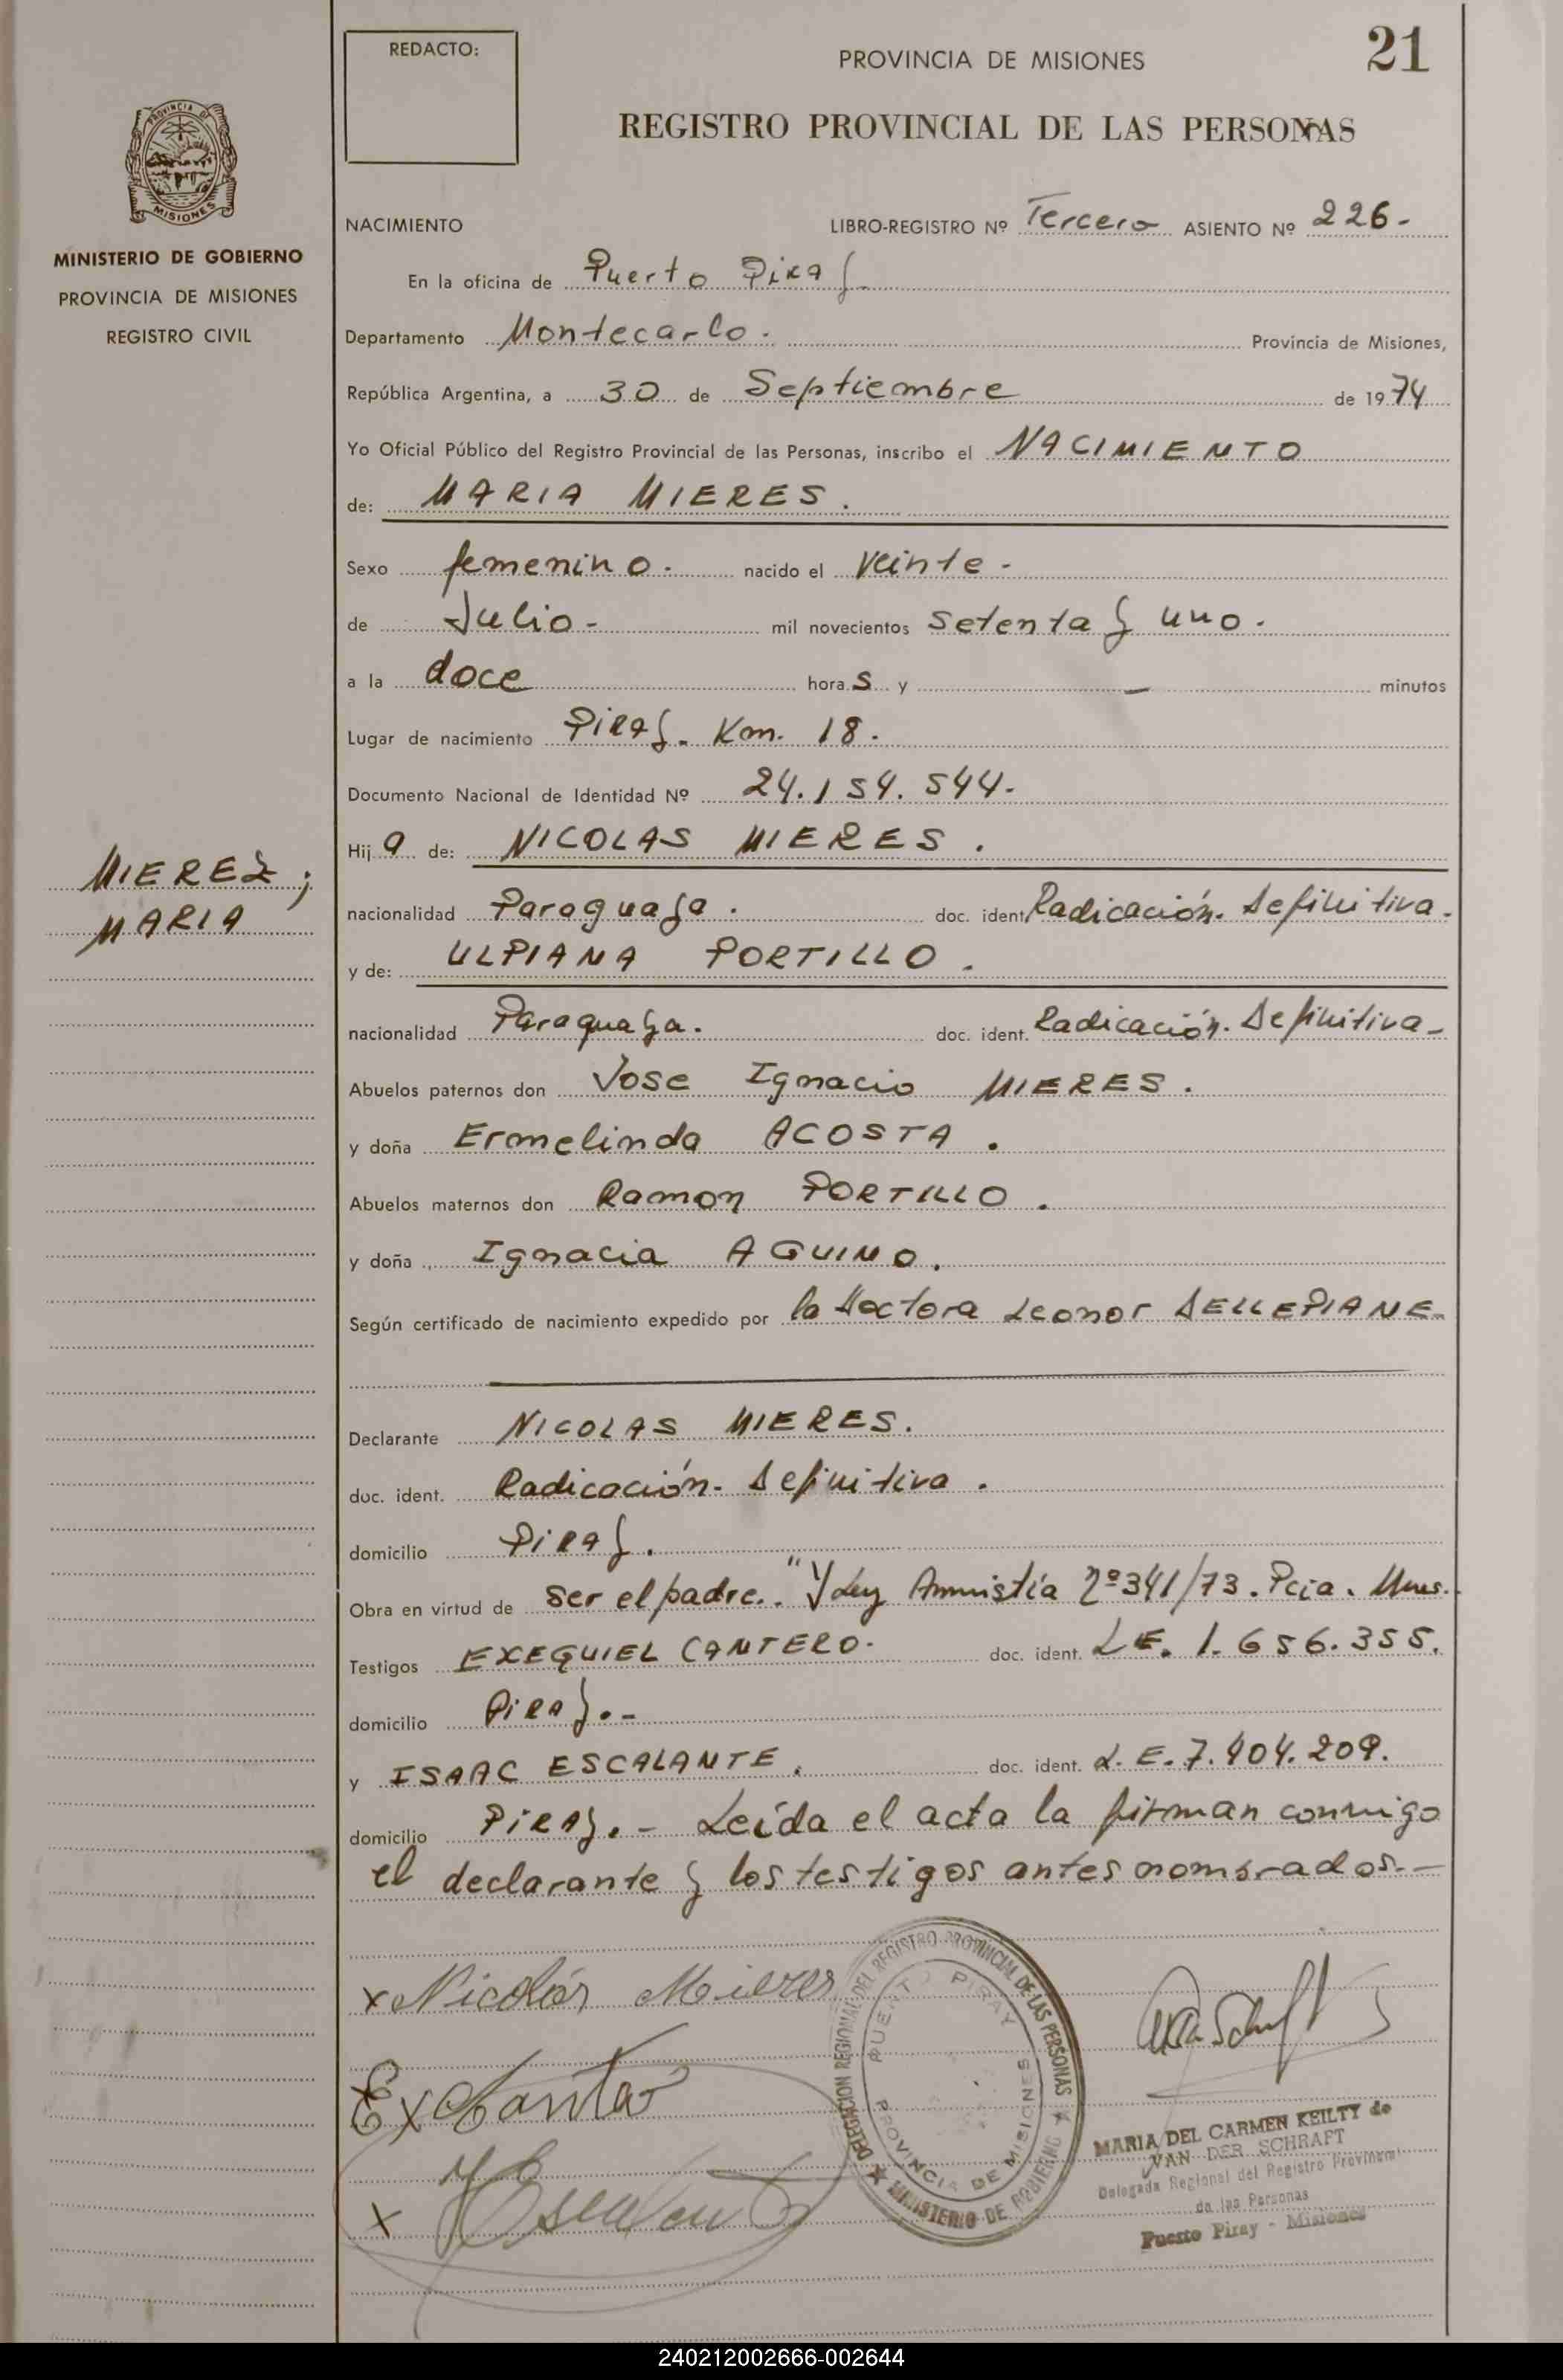 REDACTO:
PROVINCIA DE MISIONES
21
REGISTRO PROVINCIAL DE LAS PERSONAS
PROVINCIA DE
MISIONES
MINISTERIO DE GOBIERNO
PROVINCIA DE MISIONES
REGISTRO CIVIL
NACIMIENTO LIBRO-REGISTRO Nº Tercero ASIENTO Nº 226-
En la oficina de Puerto Piray.
Departamento Montecarlo. Provincia de Misiones,
República Argentina, a 30 de Septiembre de 1974
Yo Oficial Público del Registro Provincial de las Personas, inscribo el NACIMIENTO
de: MARIA MIERES.
Sexo femenino. nacido el veinte-
de Julio- mil novecientos setenta y uno.
a la doce horas y — minutos
Lugar de nacimiento Piray. Km. 18.
Documento Nacional de Identidad Nº 24.154.544-
Hija de: NICOLAS MIERES.
MIERES;
MARIA
nacionalidad Paraguaya. doc. ident. Radicación. Definitiva.
y de: ULPIANA PORTILLO.
nacionalidad Paraguaya. doc. ident. Radicación. Definitiva-
Abuelos paternos don Jose Ignacio MIERES.
y doña Ermelinda ACOSTA.
Abuelos maternos don Ramon PORTILLO.
y doña Ignacia AQUINO.
Según certificado de nacimiento expedido por la Doctora Leonor DELLEPIANE-
Declarante NICOLAS MIERES.
doc. ident. Radicación. Definitiva.
domicilio Piray.
Obra en virtud de ser el padre.. "y Ley Amnistía Nº 341/73. Pcia. Mnes.
Testigos EXEQUIEL CANTERO. doc. ident. L.E. 1.656.355.
domicilio Piray.-
y ISAAC ESCALANTE. doc. ident. L.E. 7.404.209.
domicilio Piray.- Leída el acta la firman conmigo
el declarante y los testigos antes nombrados.-
x Nicolás Mieres
DELEGACION REGIONAL DEL REGISTRO PROVINCIAL DE LAS PERSONAS
PUERTO PIRAY
PROVINCIA DE MISIONES
MINISTERIO DE GOBIERNO
x
MARIA DEL CARMEN KEILTY de
VAN DER SCHRAFT
Delegada Regional del Registro Provincial
de las Personas
Puerto Piray - Misiones
240212002666-002644